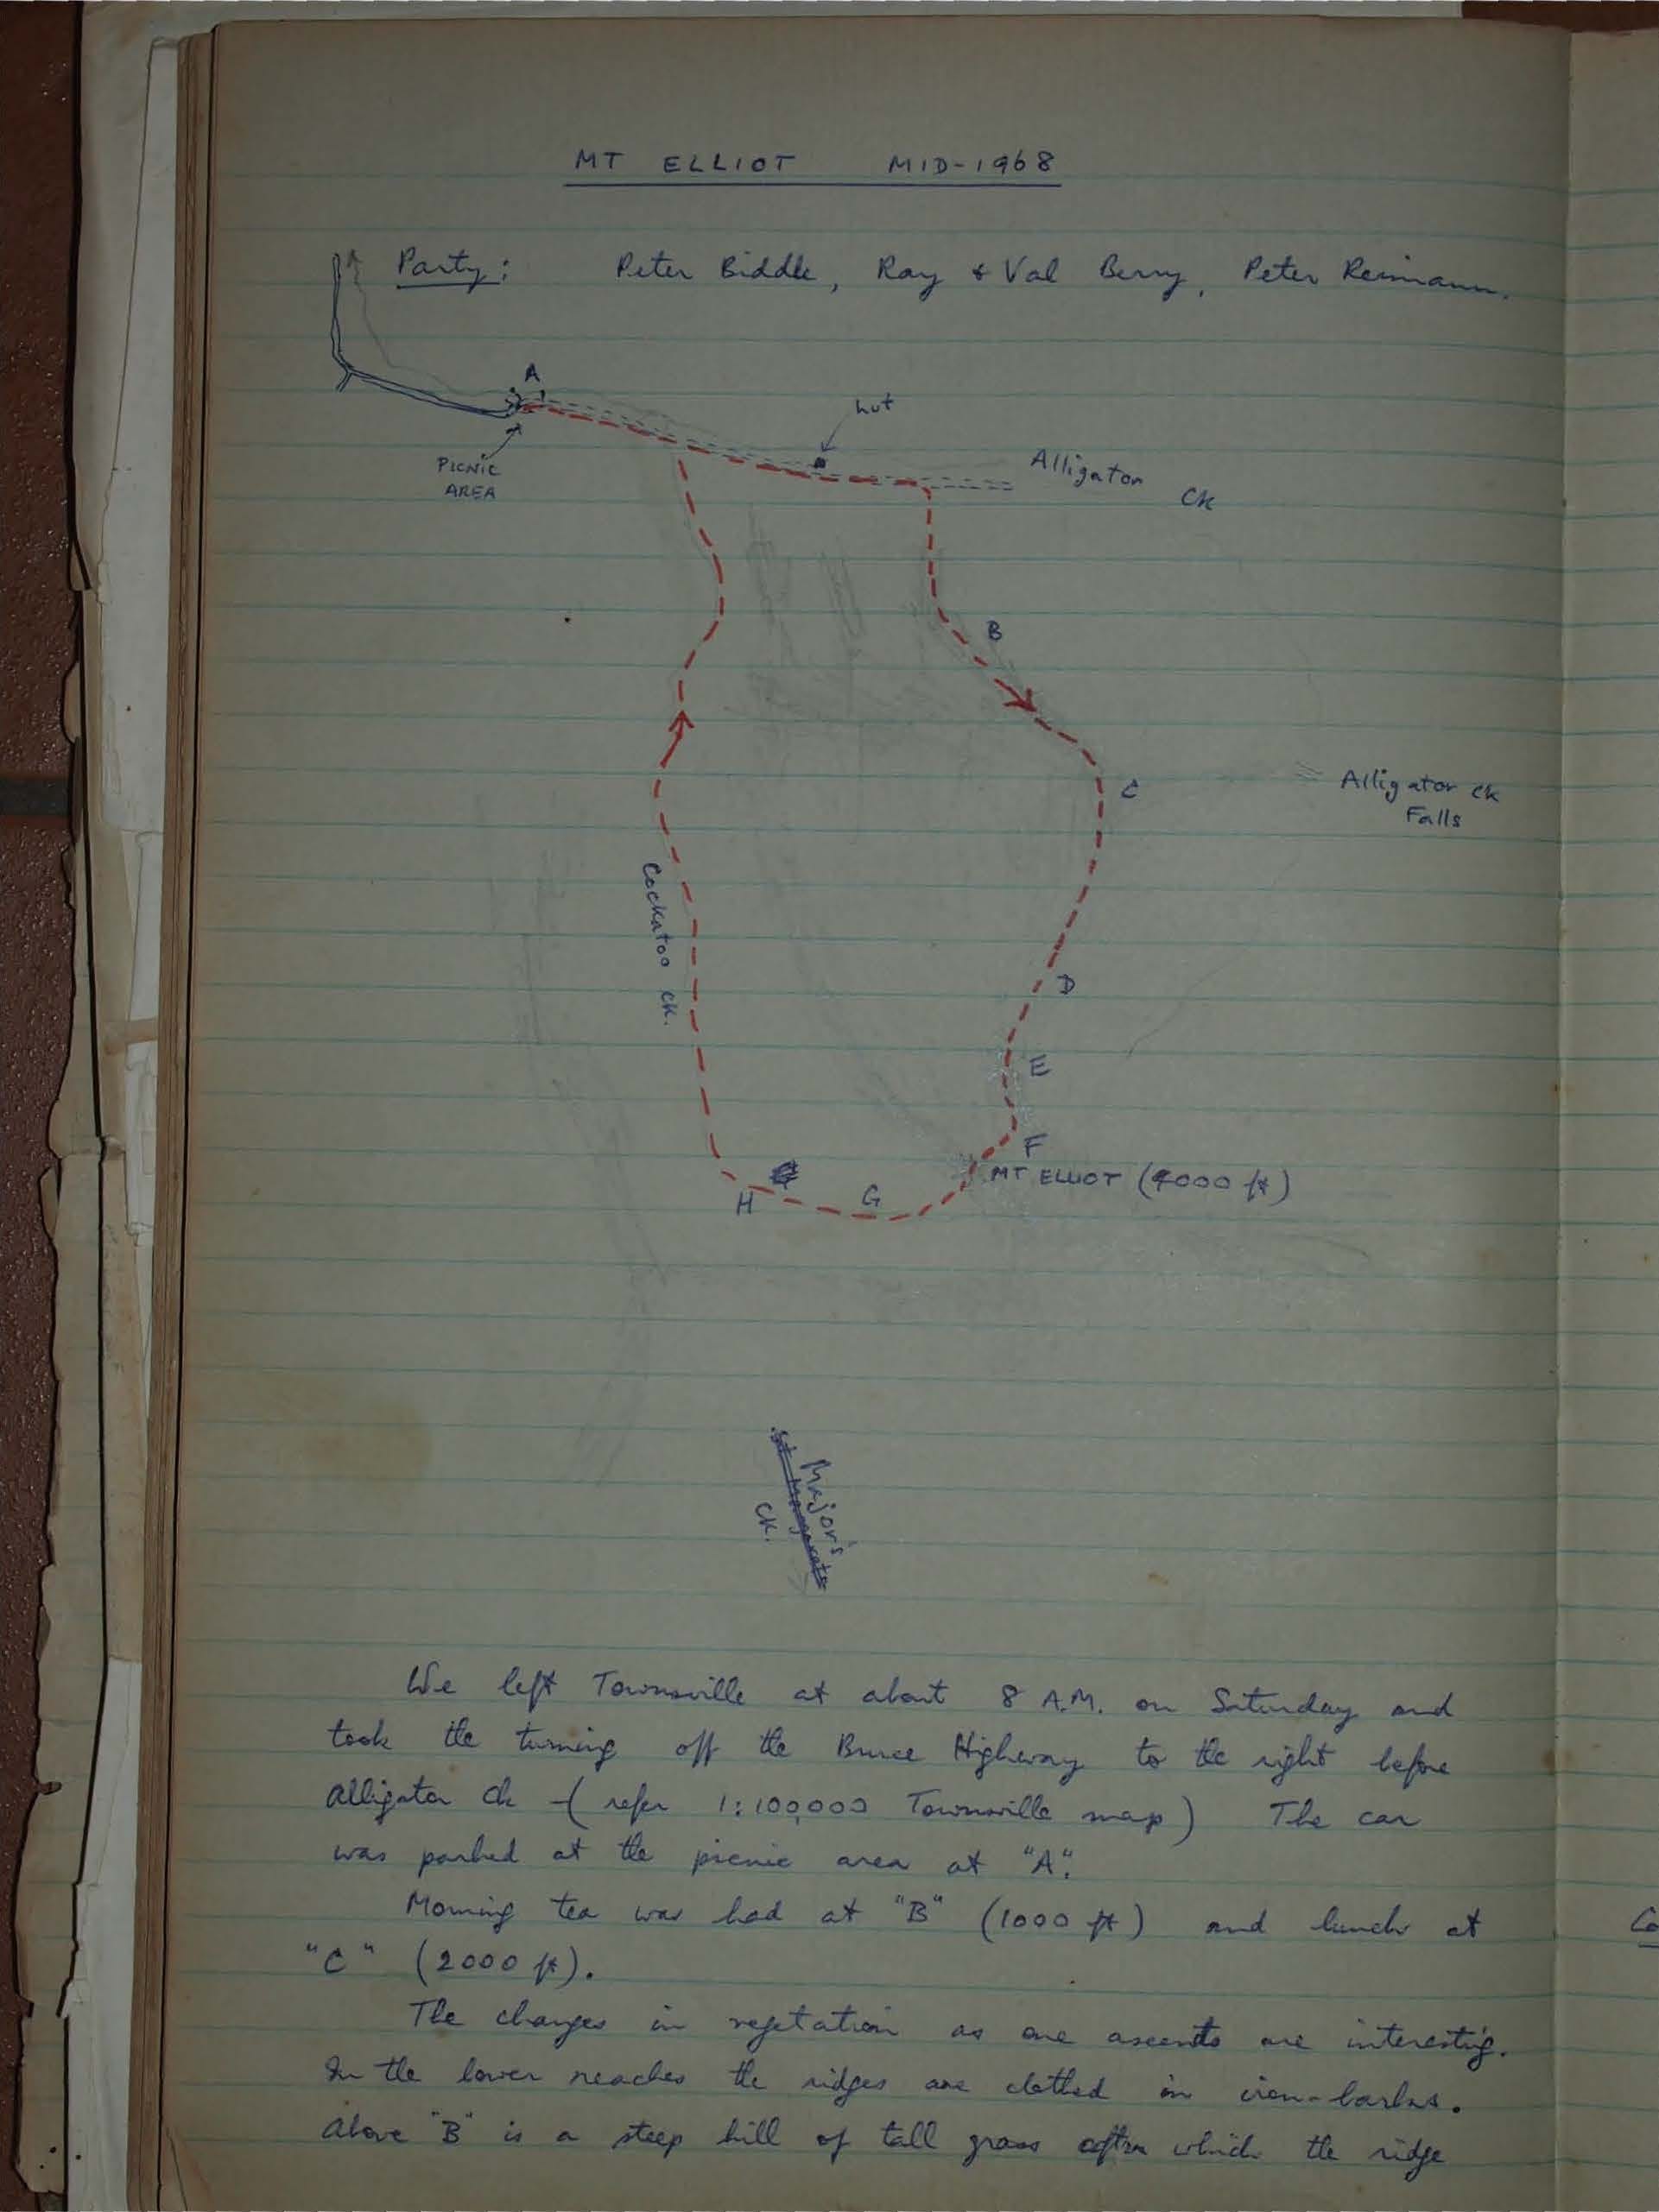 MT ELLIOT MID-1968
Party: Peter Biddle, Ray & Val Berry, Peter Reimann.
A
hut
PICNIC
AREA
Alligator Ck
B
C
Alligator Ck
Falls
Cockatoo Ck.
D
E
F
MT ELLIOT (4000 ft)
G
H
Major's
Ck.
We left Townsville at about 8 A.M. on Saturday and
took the turning off the Bruce Highway to the right before
Alligator Ck - (refer 1:100,000 Townsville map) The car
was parked at the picnic area at "A".
Morning tea was had at "B" (1000 ft) and lunch at
"C" (2000 ft).
The changes in vegetation as one ascents are interestig.
In the lower reaches the ridges are clothed in iron-barks.
Above "B" is a steep hill of tall grass after which the ridge